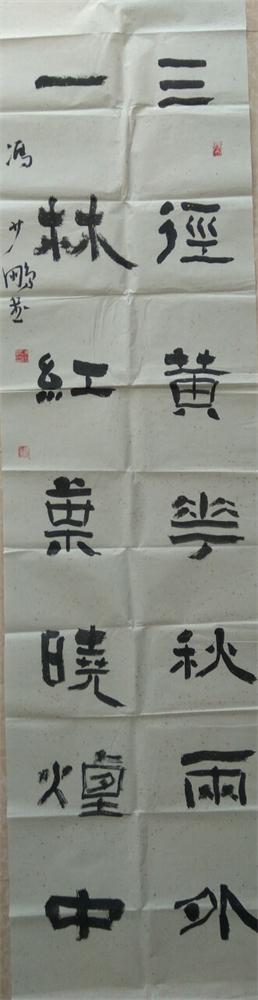 三徑黄華秋雨外
一林紅葉曉煙中
馮少鵬書